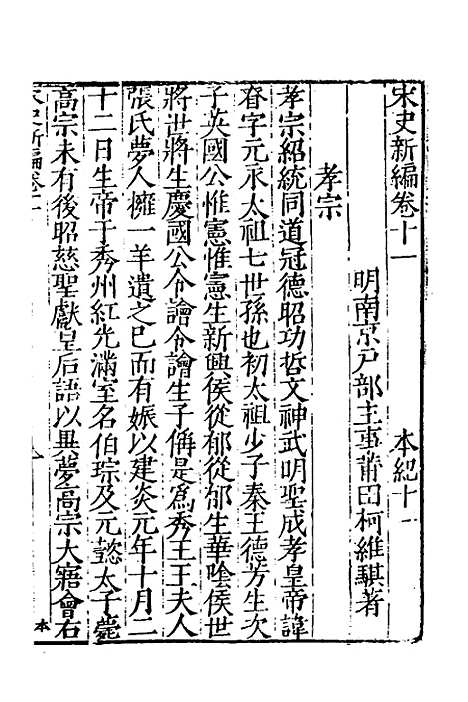 宋史新編卷十一　本紀十一
明南京戶部主事莆田柯維騏著
孝宗
孝宗紹統同道冠德昭功哲文神武明聖成孝皇帝諱
眘字元永太祖七世孫也初太祖少子秦王德芳生次
子英國公惟憲惟憲生新興侯從郁從郁生華陰侯世
將世將生慶國公令譮令譮生子偁是爲秀王王夫人
張氏夢人擁一羊遺之已而有娠以建炎元年十月二
十二日生帝于秀州紅光滿室名伯琮及元懿太子薨
高宗未有後昭慈聖獻皇后語以異夢高宗大寤會右
宋史新編卷十一
本